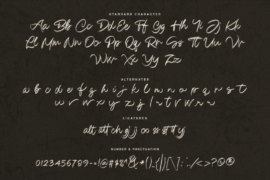 STANDARD CHARACTER
Aa Bb Cc Dd Ee Ff Gg Hh Ii Jj Kk
Ll Mm Nn Oo Pp Qq Rr Ss Tt Uu Vv
Ww Xx Yy Zz
ALTERNATES
a b c d e f g h i j k l m n o p q r s t
u v w x y z
LIGATURES
NUMBER & PUNCTUATION
0123456789